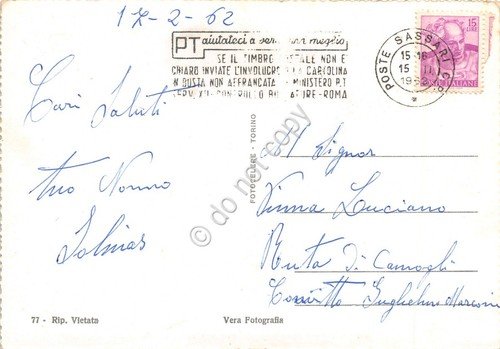 17-2-62
PT aiutateci a servirvi meglio
SE IL TIMBRO POSTALE NON È
CHIARO INVIATE L'INVOLUCRO O LA CARTOLINA
IN BUSTA NON AFFRANCATA A MINISTERO P.T.
CONTROLLO BOLLATURE-ROMA
POSTE SASSARI
15
15 II
1962
15
LIRE
ITALIANE
Cari Saluti
tuo Nonno
FOTOCELERE - TORINO
do not copy
Al Signor
Vinna Luciano
Ruta di Camogli
Convitto Guglielmo Marconi
77 - Rip. Vietata
Vera Fotografia